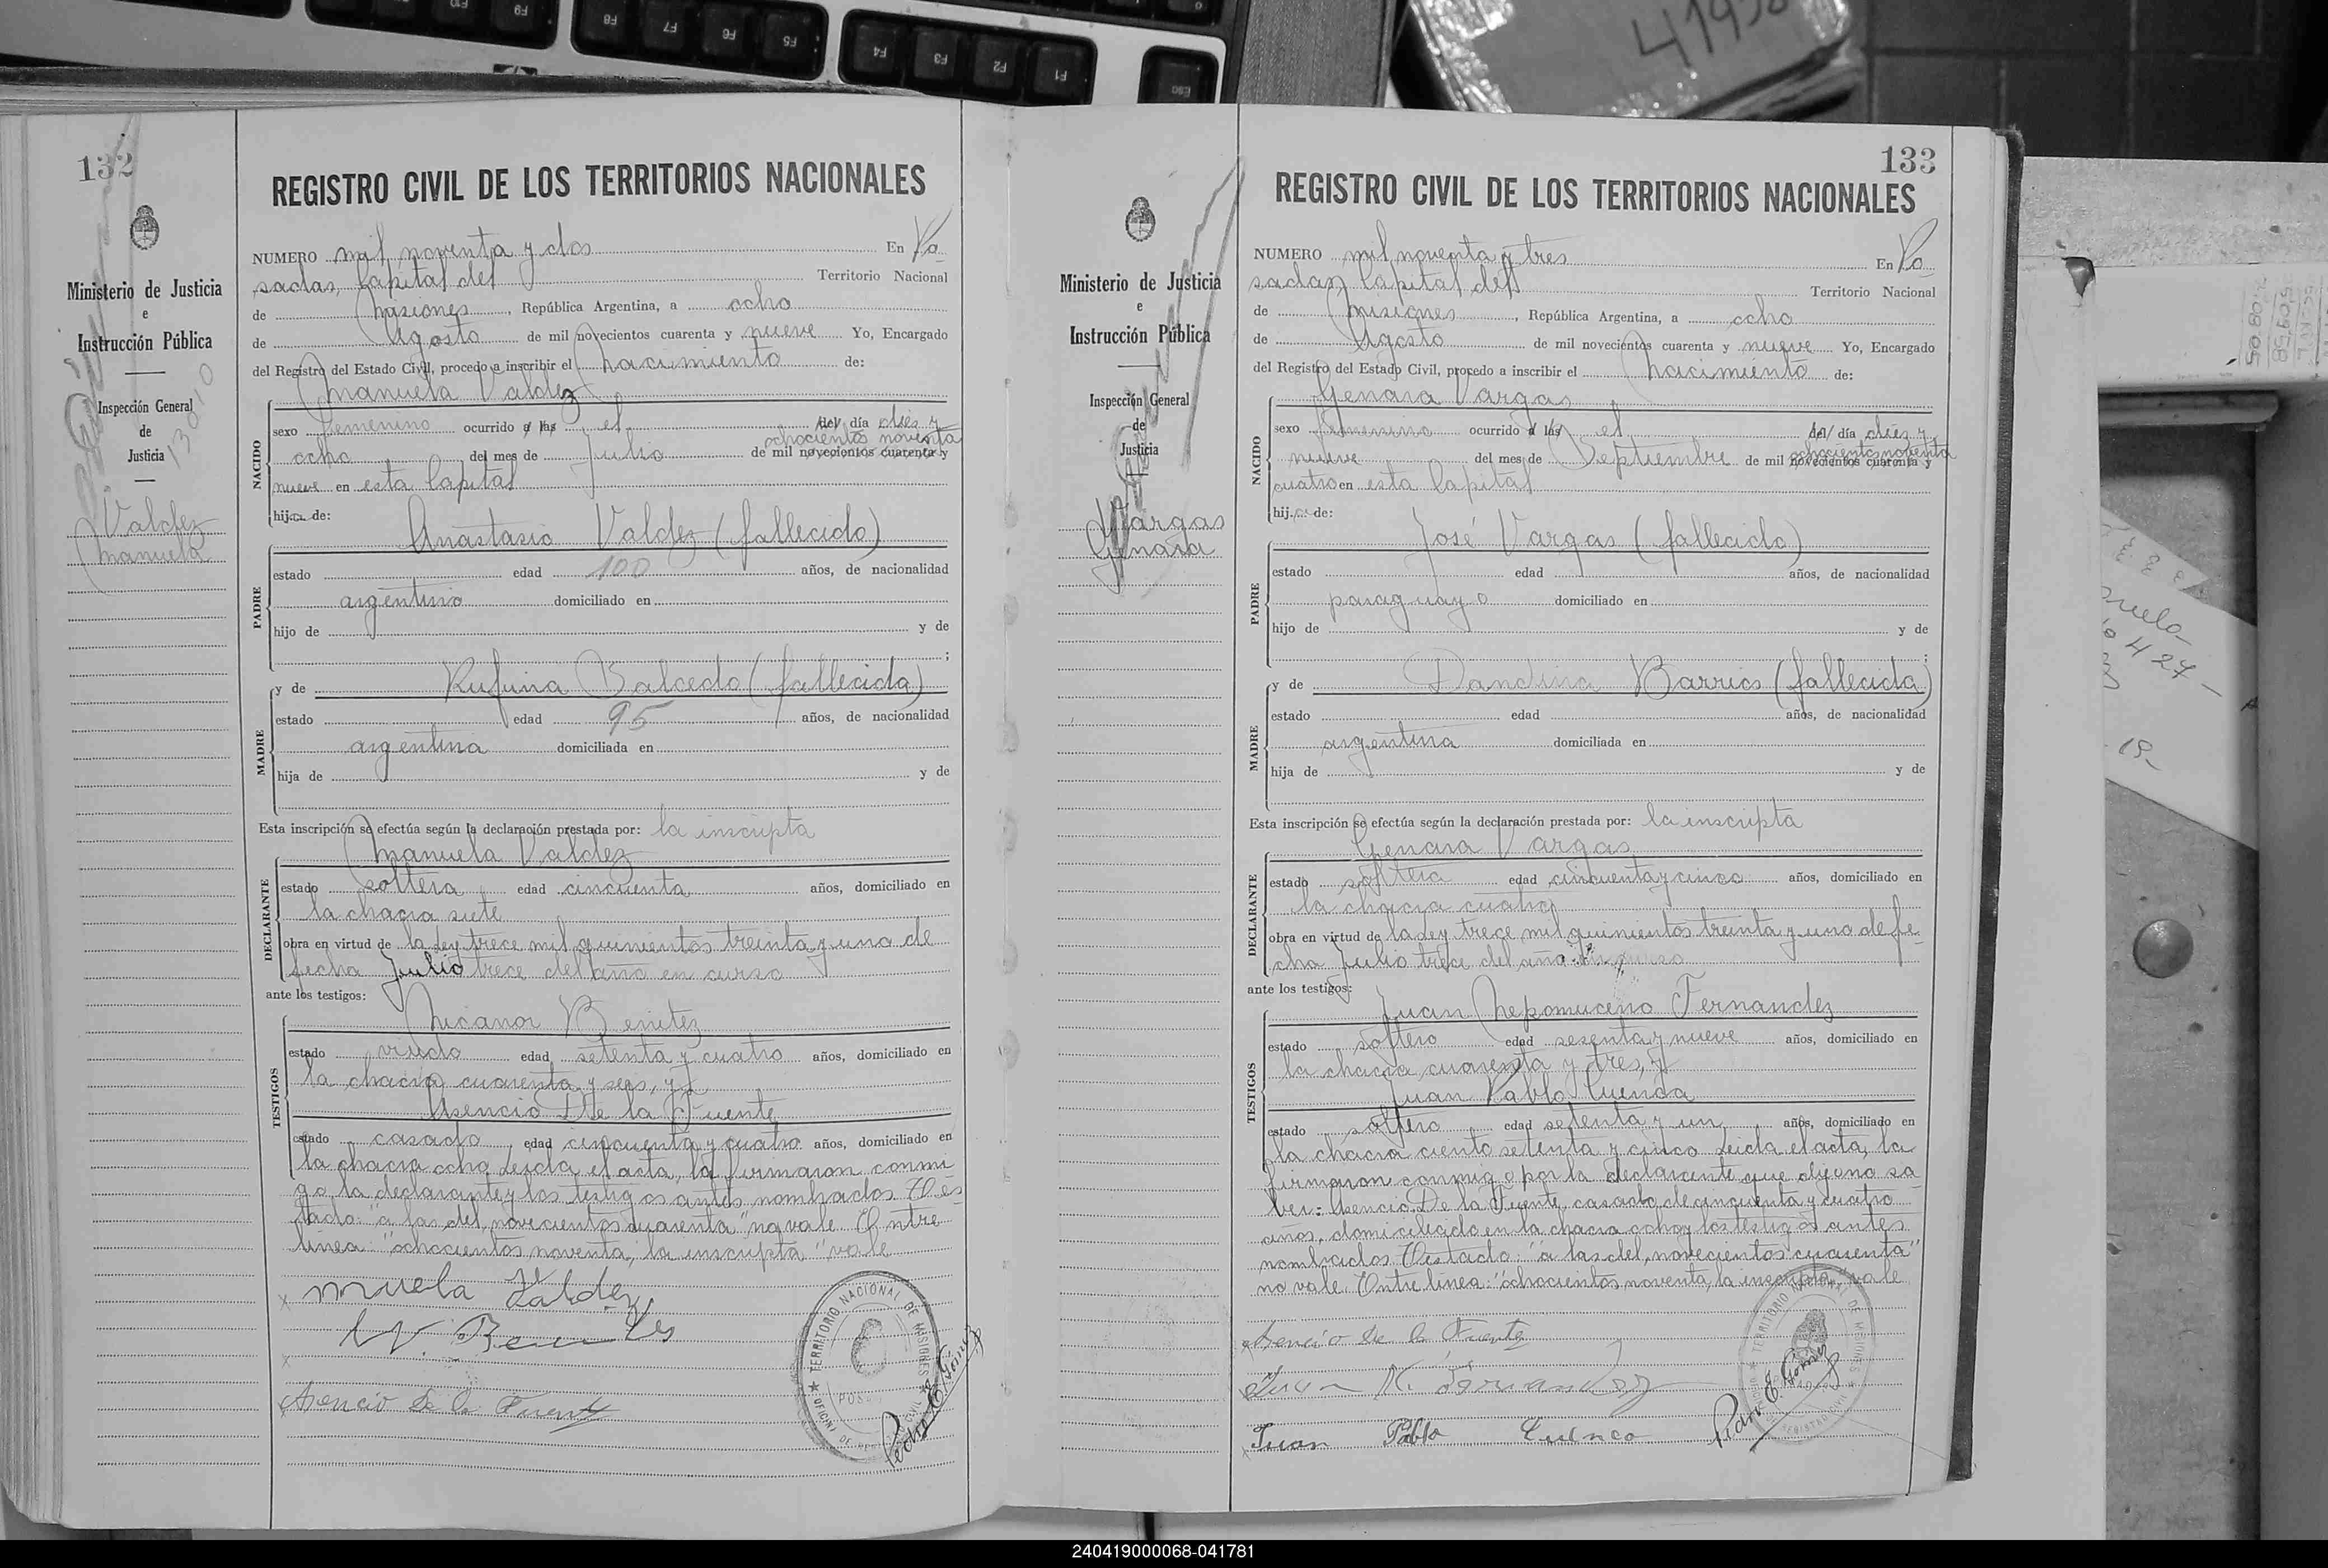 132
Ministerio de Justicia
e
Instrucción Pública
Inspección General
de
Justicia
Valdez
Manuela
REGISTRO CIVIL DE LOS TERRITORIOS NACIONALES
NUMERO mil noventa y dos En Po
sadas, Capital del Territorio Nacional
de Misiones, República Argentina, a ocho
de Agosto de mil novecientos cuarenta y nueve Yo, Encargado
del Registro del Estado Civil, procedo a inscribir el nacimiento de:
Manuela Valdez
NACIDO
sexo femenino ocurrido a las el del día diez y
ochocientos noventa
ocho del mes de Julio de mil novecientos cuarenta y
nueve en esta Capital
hija de:
PADRE
Anastasio Valdez (fallecido)
estado edad 100 años, de nacionalidad
argentino domiciliado en
hijo de y de
MADRE
y de Rufina Balcedo (fallecida)
estado edad 95 años, de nacionalidad
argentina domiciliada en
hija de y de
Esta inscripción se efectúa según la declaración prestada por: la inscripta
DECLARANTE
Manuela Valdez
estado soltera edad cincuenta años, domiciliado en
la chacra siete
obra en virtud de la Ley trece mil quinientos treinta y uno de
fecha Julio trece del año en curso
ante los testigos:
TESTIGOS
Nicanor Benitez
estado viudo edad setenta y cuatro años, domiciliado en
la chacra cuarenta y seis, y
Asencio De la Fuente
estado casado edad cincuenta y cuatro años, domiciliado en
la chacra ocho Leida el acta, la firmaron conmi
go la declarante y los testigos antes nombrados Tes
tado: "a las del, novecientos cuarenta" no vale Entre
linea: "ochocientos noventa, la inscripta" vale
muela Valdez
N. Benites
Asencio de la Fuente
TERRITORIO NACIONAL DE MISIONES
Pedro E. Gómez
133
Ministerio de Justicia
e
Instrucción Pública
Inspección General
de
Justicia
Vargas
Genara
REGISTRO CIVIL DE LOS TERRITORIOS NACIONALES
NUMERO mil noventa y tres En Po
sadas, Capital del Territorio Nacional
de Misiones, República Argentina, a ocho
de Agosto de mil novecientos cuarenta y nueve Yo, Encargado
del Registro del Estado Civil, procedo a inscribir el nacimiento de:
Genara Vargas
NACIDO
sexo femenino ocurrido a las el del día diez y
ochocientos noventa
nueve del mes de Septiembre de mil novecientos cuarenta y
cuatro en esta Capital
hija de:
PADRE
José Vargas (fallecido)
estado edad años, de nacionalidad
paraguayo domiciliado en
hijo de y de
MADRE
y de Dandina Barrios (fallecida)
estado edad años, de nacionalidad
argentina domiciliada en
hija de y de
Esta inscripción se efectúa según la declaración prestada por: la inscripta
DECLARANTE
Genara Vargas
estado soltera edad cincuenta y cinco años, domiciliado en
la chacra cuatro
obra en virtud de la Ley trece mil quinientos treinta y uno de fe
cha Julio trece del año en curso
ante los testigos:
TESTIGOS
Juan Nepomuceno Fernandez
estado soltero edad sesenta y nueve años, domiciliado en
la chacra cuarenta y tres, y
Juan Pablo Cuenca
estado soltero edad setenta y un años, domiciliado en
la chacra ciento setenta y cinco Leida el acta, la
firmaron conmigo por la declarante que dijo no sa
ber: Asencio De la Fuente, casado de cincuenta y cuatro
años, domiciliado en la chacra ocho y los testigos antes
nombrados Testado: "a las del, novecientos cuarenta"
no vale Entre linea: "ochocientos noventa, la inscripta" vale
Asencio de la Fuente
Juan N. Fernandez
Juan Pablo Cuenca
Pedro E. Gómez
240419000068-041781